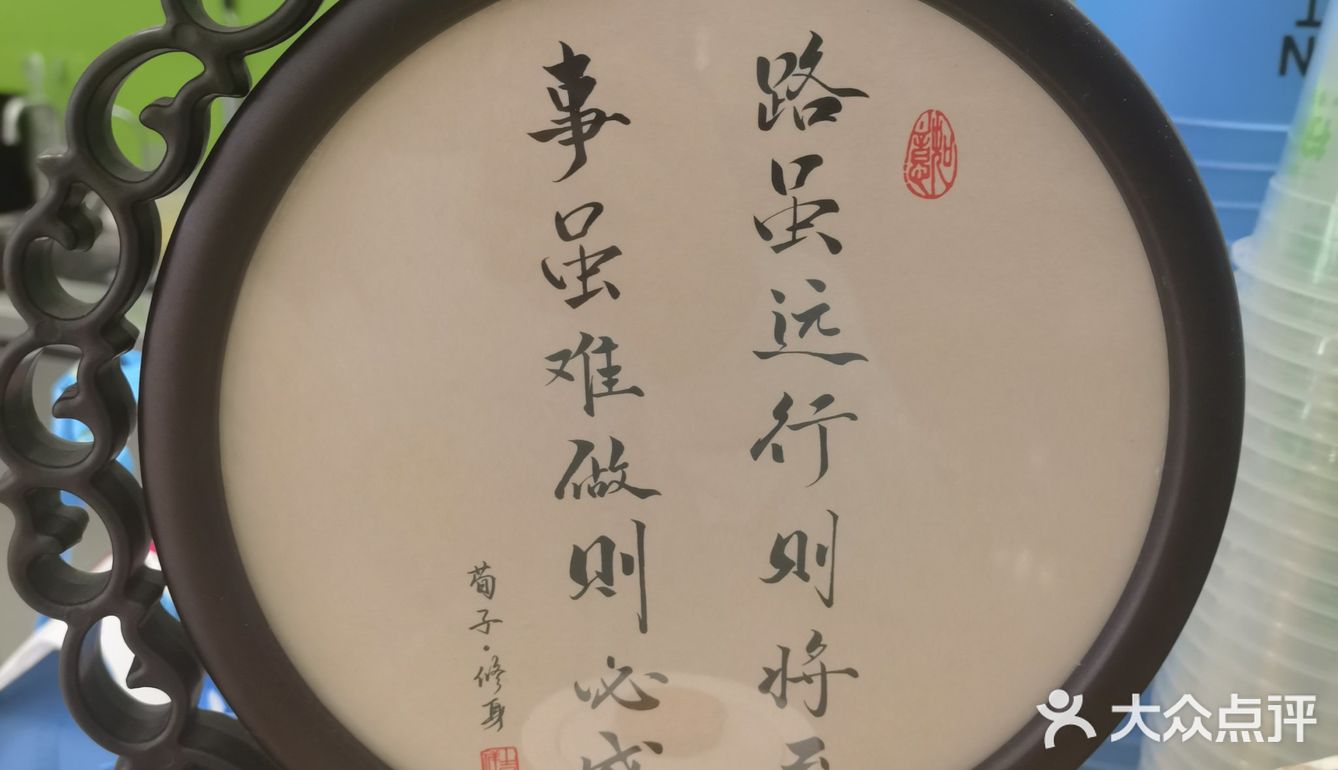 路虽远行则将至
事虽难做则必成
荀子·修身
如意
大众点评